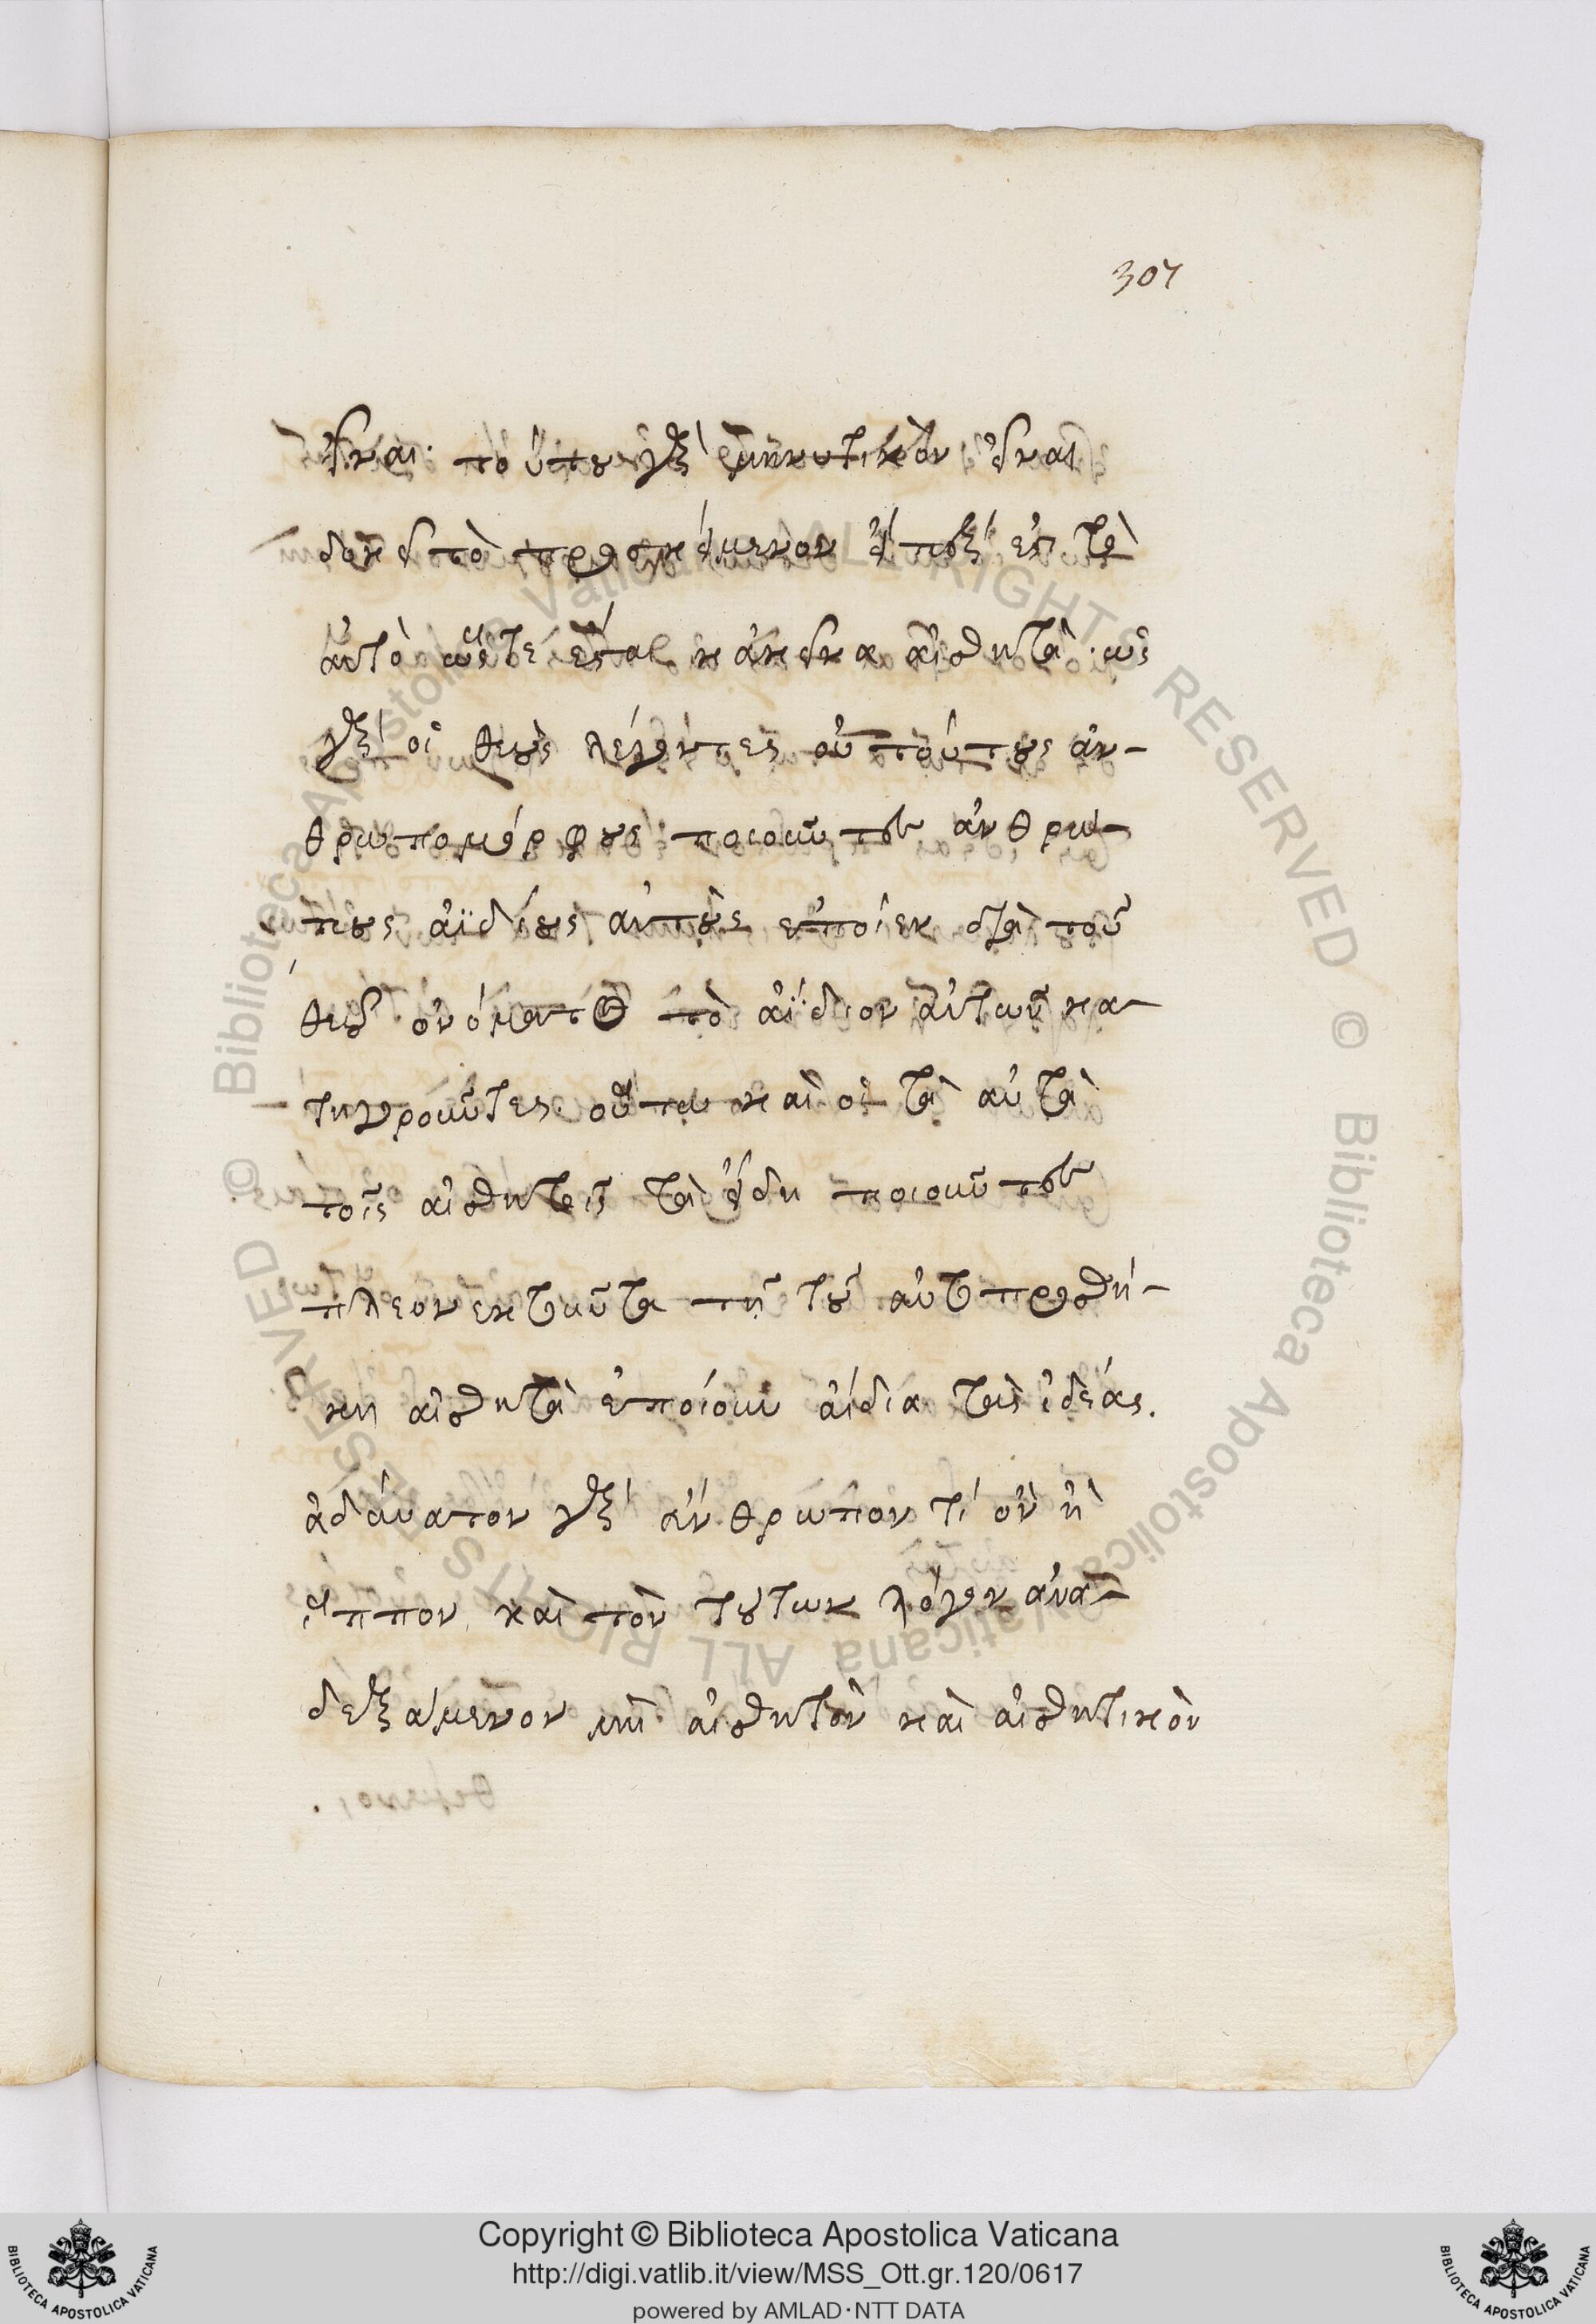 307
εἶναι· τούτου γὰρ μηνυτικὸν εἶναι
δοκεῖ τὸ προσκείμενον εἴπερ ἐστὶ τὸ
αὐτὸ ὥστε ἔσται κἀκεῖνα αἰσθητὰ· ὡς
γὰρ οἱ θεοὺς λέγοντες οὐ τούτους ἀν-
θρωπομόρφους ποιοῦντες ἀνθρώ-
πους ἀϊδίους αὐτοὺς ἐποίεν διὰ τοῦ
θεοῦ ὀνόματος τὸ ἀΐδιον αὐτῶν κα-
τηγοροῦντες· οὕτω καὶ οἱ τὰ αὐτὰ
τοῖς αἰσθητοῖς τὰ εἴδη ποιοῦντες
πλεονεκτοῦντα τῇ τοῦ αὐτὸ προσθή-
κῃ αἰσθητὰ ἐποίουν ἀίδια τὰς ἰδέας.
ἀδύνατον γὰρ ἄνθρωπον τὶ ὂν ἢ
ἵππον, καὶ τὸν τούτων λόγον ἀνα-
δεξάμενον μὴ αἰσθητὸν καὶ αἰσθητικὸν
Copyright © Biblioteca Apostolica Vaticana
http://digi.vatlib.it/view/MSS_Ott.gr.120/0617
powered by AMLAD·NTT DATA
BIBLIOTECA APOSTOLICA VATICANA
BIBLIOTECA APOSTOLICA VATICANA
© Biblioteca Apostolica Vaticana ALL RIGHTS RESERVED
© Biblioteca Apostolica Vaticana ALL RIGHTS RESERVED